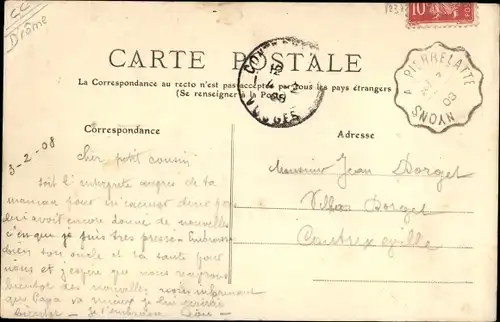 CC
Drôme
10
CARTE POSTALE
La Correspondance au recto n'est pas acceptée par tous les pays étrangers
(Se renseigner à la Poste)
CONTREXEVILLE
VOSGES
NYONS A PIERRELATTE
03
Correspondance
Adresse
3-2-08
Cher petit cousin
soit l'interprète auprès de ta
maman pour m'excuser de ne pas
lui avoir encore donné de nouvelles
c'en que je suis très pressé Embrasse
bien ton oncle et ta tante pour
nous et j'espère que nous
bientôt des nouvelles nous informant
que Papa va mieux je lui
bientôt - Je t'embrasse
Monsieur Jean Dorget
Villa Dorget
Contrexeville